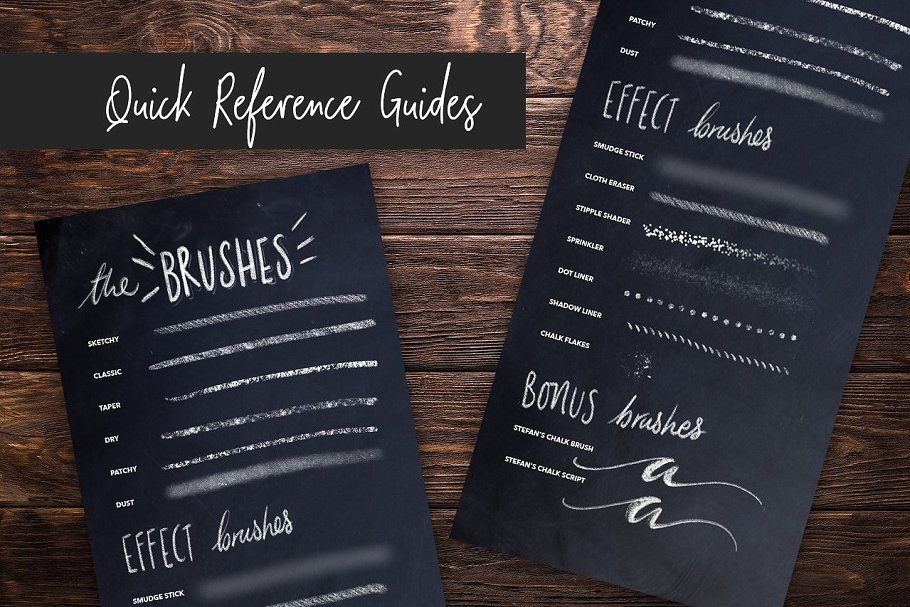 Quick Reference Guides
the BRUSHES
SKETCHY
CLASSIC
TAPER
DRY
PATCHY
DUST
EFFECT brushes
SMUDGE STICK
PATCHY
DUST
EFFECT brushes
SMUDGE STICK
CLOTH ERASER
STIPPLE SHADER
SPRINKLER
DOT LINER
SHADOW LINER
CHALK FLAKES
BONUS brushes
STEFAN'S CHALK BRUSH
a
STEFAN'S CHALK SCRIPT
a